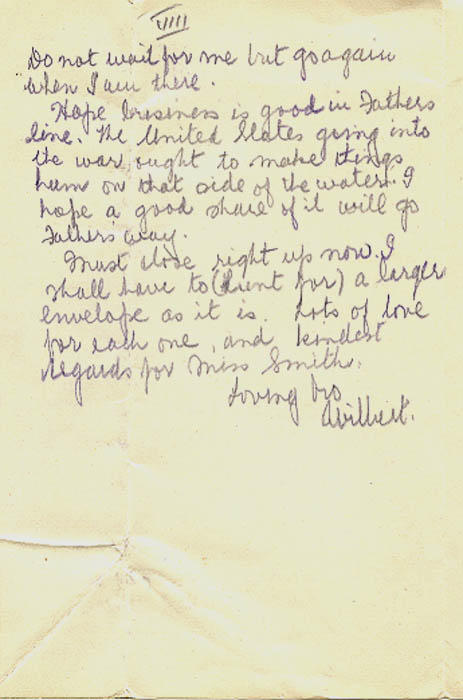 VIII
Do not wait for me but go again
when I am there.
Hope business is good in Fathers
line. The United States going into
the war ought to make things
hum on that side of the water. I
hope a good share of it will go
Fathers way.
Must close right up now. I
shall have to (hunt for) a larger
envelope as it is. Lots of love
for each one, and kindest
regards for Miss Smith.
Loving bro
Wilbert.